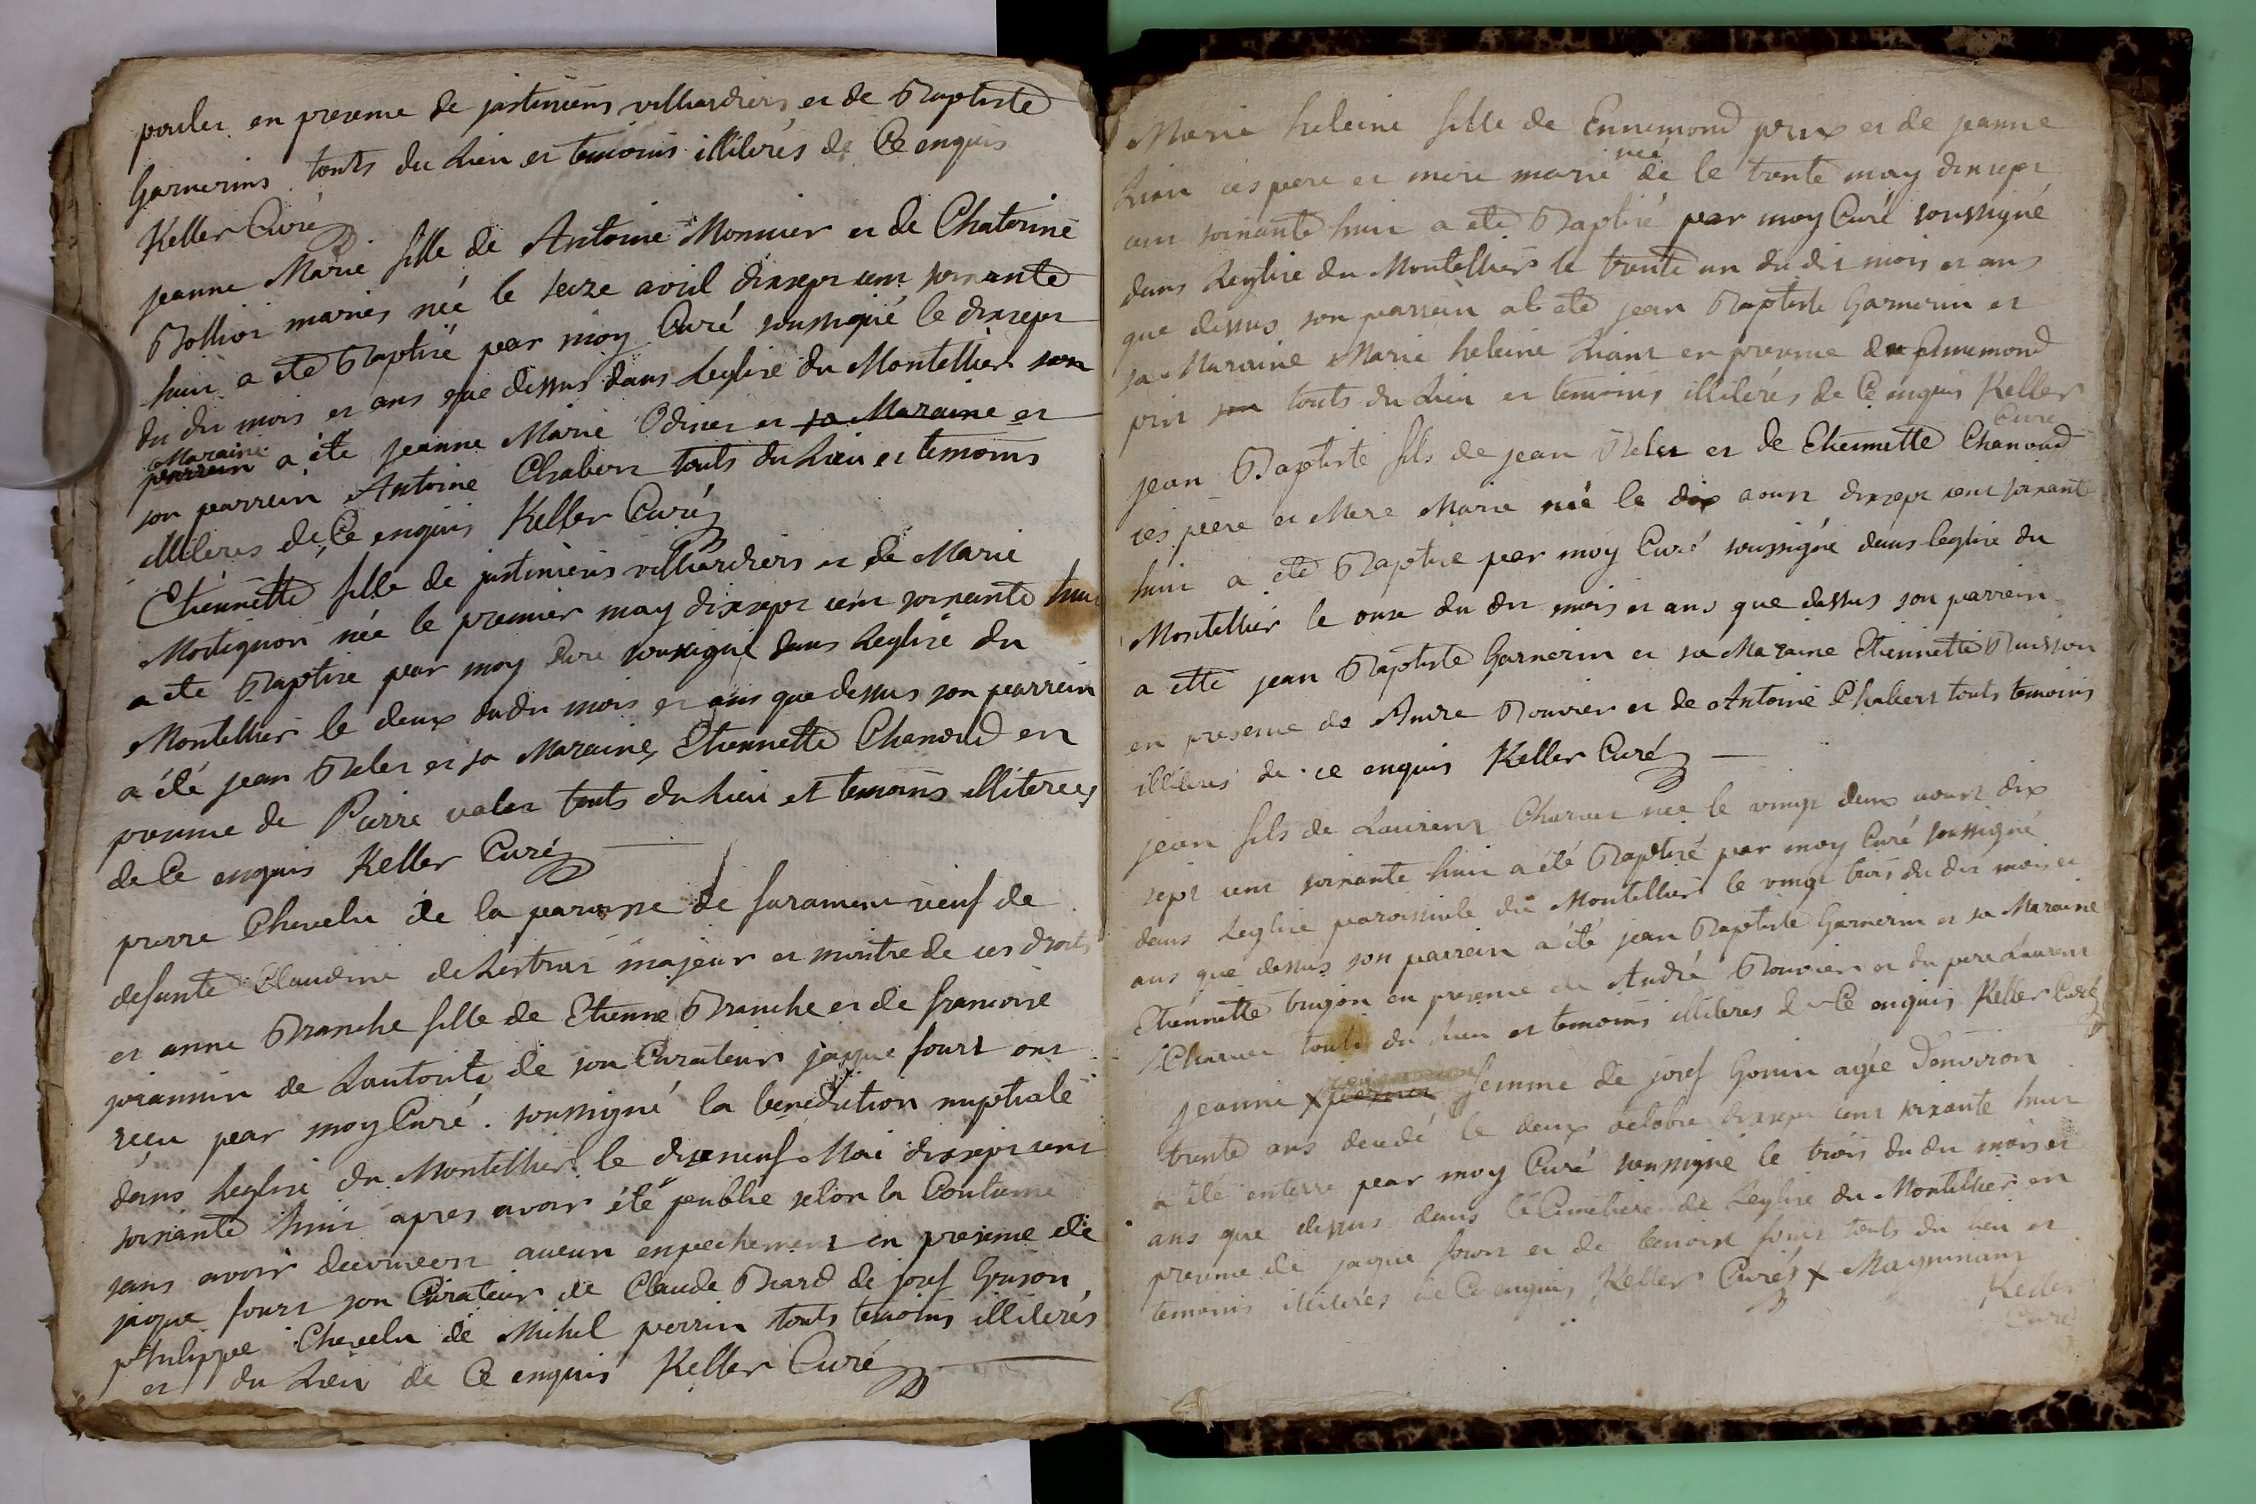 poulet en presence de justiniens villiardiers et de Baptiste
Garnerins touts du Lieu et temoins illiterés de Ce enquis
Keller Curé
jeanne Marie fille de Antoine Monnier et de Chaterine
Bollion mariés née le seize avril dixsept cent soixante
huit a eté Baptisé par moy Curé soussigné le dixsept
du dit mois et ans que dessus dans Leglise du Montellier son
Maraine
parrein a été jeanne Marie Odinet et sa Maraine et
son parrein Antoine Chabert touts du Lieu et temoins
illiteres de Ce enquis Keller Curé
Etiennette fille de justiniens villiardiers et de Marie
Motignon née le premier may dixsept cent soixante huit
a ete Baptise par moy Cure soussigné dans Leglise du
Montellier le deux dudit mois et ans que dessus son parrein
a été jean Relet et sa Maraine Etiennette Chanoud en
presence de Pierre valet touts du Lieu et temoins illiterees
de Ce enquis Keller Curé
pierre Chevelu de la paroisse de faramant veuf de
defunte Claudine de Lestras majeur et maitre de ces droits
et anne Branche fille de Etienne Branche et de francoise
joiannin de Lautorite de son Curateur jaque fourt ont
reçu par moy Curé soussigné la benediction nuptiale
dans Leglise du Montellier le dixneuf Mai dixsept cent
soixante huit apres avoir été publie selon la Coutume
sans avoir decouvert aucun enpechement en presence de
jaque fourt son Curateur de Claude Biard de josef Grison
philippe Chevelu de Mihel perrin touts temoins illiterés
et du Lieu de Ce enquis Keller Curé
Marie heleine fille de Ennemond prix et de jeanne
née
Liant ces pere et mere marié de le trente may dixsept
cent soixante huit a eté Baptisé par moy Curé soussigné
dans Leglise du Montellier le trente un du dit mois et ans
que dessus son parrein at eté jean Baptiste Garnerin et
sa Maraine Marie heleine Liant en presence de Ennemond
prix touts du Lieu et temoins illiterés de Ce enquis Keller
Curé
jean Baptiste fils de jean Relet et de Etiennette Chanoud
ces pere et Mere Marie né le dix aoust dixsept cent soixante
huit a eté Baptise par moy Curé soussigné dans leglise du
Montellier le onze du dit mois et ans que dessus son parrein
a etté jean Baptiste Garnerin et sa Maraine Etiennette Buisson
en presence de Andre Bouvier et de Antoine Chabert touts temoins
illiteres de ce enquis Keller Curé
jean fils de Laurent Charvet née le vingt deux aoust dix
sept cent soixante huit a été Baptisé par moy Curé soussigné
dans Leglise paroissiale du Montellier le vingt trois du dit mois et
ans que dessus son parrein a été jean Baptiste Garnerin et sa Maraine
Etiennette buison en presence de André Bouvier et du pere Laurent
Charvet touts du Lieu et temoins illiteres de Ce enquis Keller Curé
jeanne x femme de josef Gonin agée Denviron
trente ans decedé le deux octobre dixsept cent soixante huit
a été enterre par moy Curé soussigné le trois du dit mois et
ans que dessus dans le Cimetiere de Leglise du Montellier en
presence de jaque fourt et de benoist fourt touts du lieu et
temoins illiterés de Ce enquis Keller Curé x
Keller
Curé